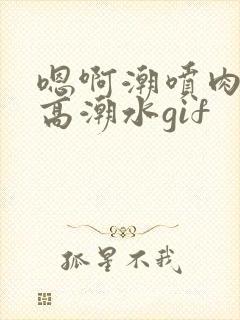 嗯啊潮喷肉
高潮水gif
孤星不我